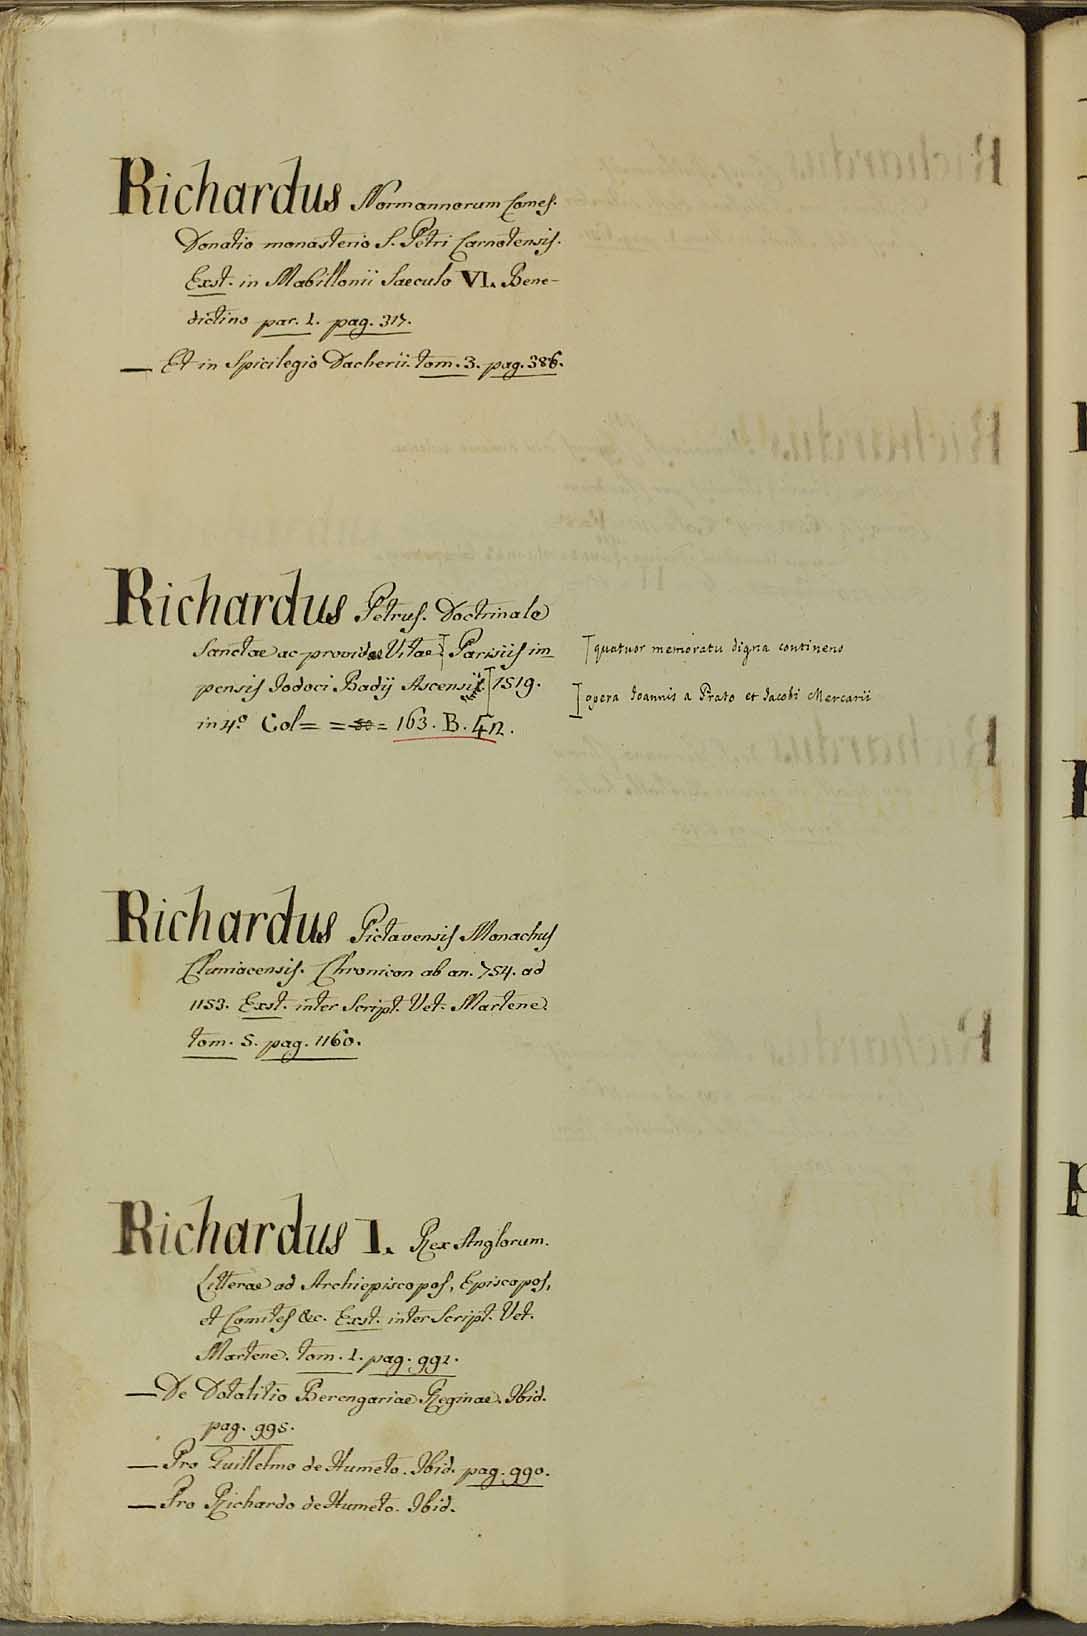 Richardus Normannorum Comes.
Donatio monasterio S. Petri Carnotensis.
Exst. in Mabillonii Saeculo VI. Bene-
dictino par. 1. pag. 317.
— Et in Spicilegio Dacherii. tom. 3. pag. 386.
Richardus Petrus. Doctrinale
Sanctae ac providae Vitae Parisiis im
quatuor memoratu digna continens
pensis Jodoci Badij Ascensii 1519.
opera Joannis a Prato et Jacobi Mercarii
in 4.º Col = = = 163. B. 42.
Richardus Pictavensis Monachus
Cluniacensis. Chronicon ab an. 754. ad
1153. Exst. inter Script. Vet. Martene.
tom. 5. pag. 1160.
Richardus I. Rex Anglorum.
Litterae ad Archiepiscopos, Episcopos,
et Comites &c. Exst. inter Script. Vet.
Martene. tom. 1. pag. 992.
— De Dotalitio Berengariae Reginae. Ibid.
pag. 995.
— Pro Guillelmo de Humeto. Ibid. pag. 990.
— Pro Richardo de Humeto. Ibid.